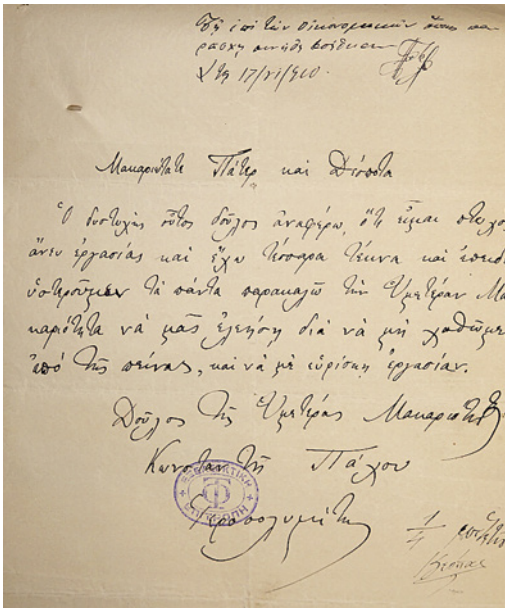 Τῇ ἐπὶ τῶν Οἰκονομικῶν ὅπως πα-
ράσχῃ αὐτῷ βοήθειαν
τῇ 17/VI/910
Μακαριώτατε Πάτερ καὶ Δέσποτα
Ὁ δυστυχὴς οὗτος δοῦλος ἀναφέρω, ὅτι εἶμαι πτωχος
ἄνευ ἐργασίας καὶ ἔχω τέσσαρα τέκνα καὶ ἐπειδὴ
ὑστερούμεν τὰ πάντα παρακαλῶ τὴν Ὑμετέραν Μα
καριότητα νὰ μᾶς ἐλεήσῃ διὰ νὰ μὴ χαθῶμεν
ἀπὸ τῆς πείνας, καὶ νὰ μὲ εὑρίσκῃ ἐργασίαν.
Δοῦλος τῆς Ὑμετέρας Μακαριότητος
Κωνσταντῆς Πάχου
ΕΞΕΛΕΓΚΤΙΚΗ ΕΠΙΤΡΟΠΗ
Ἱεροσολυμίτης
1/4